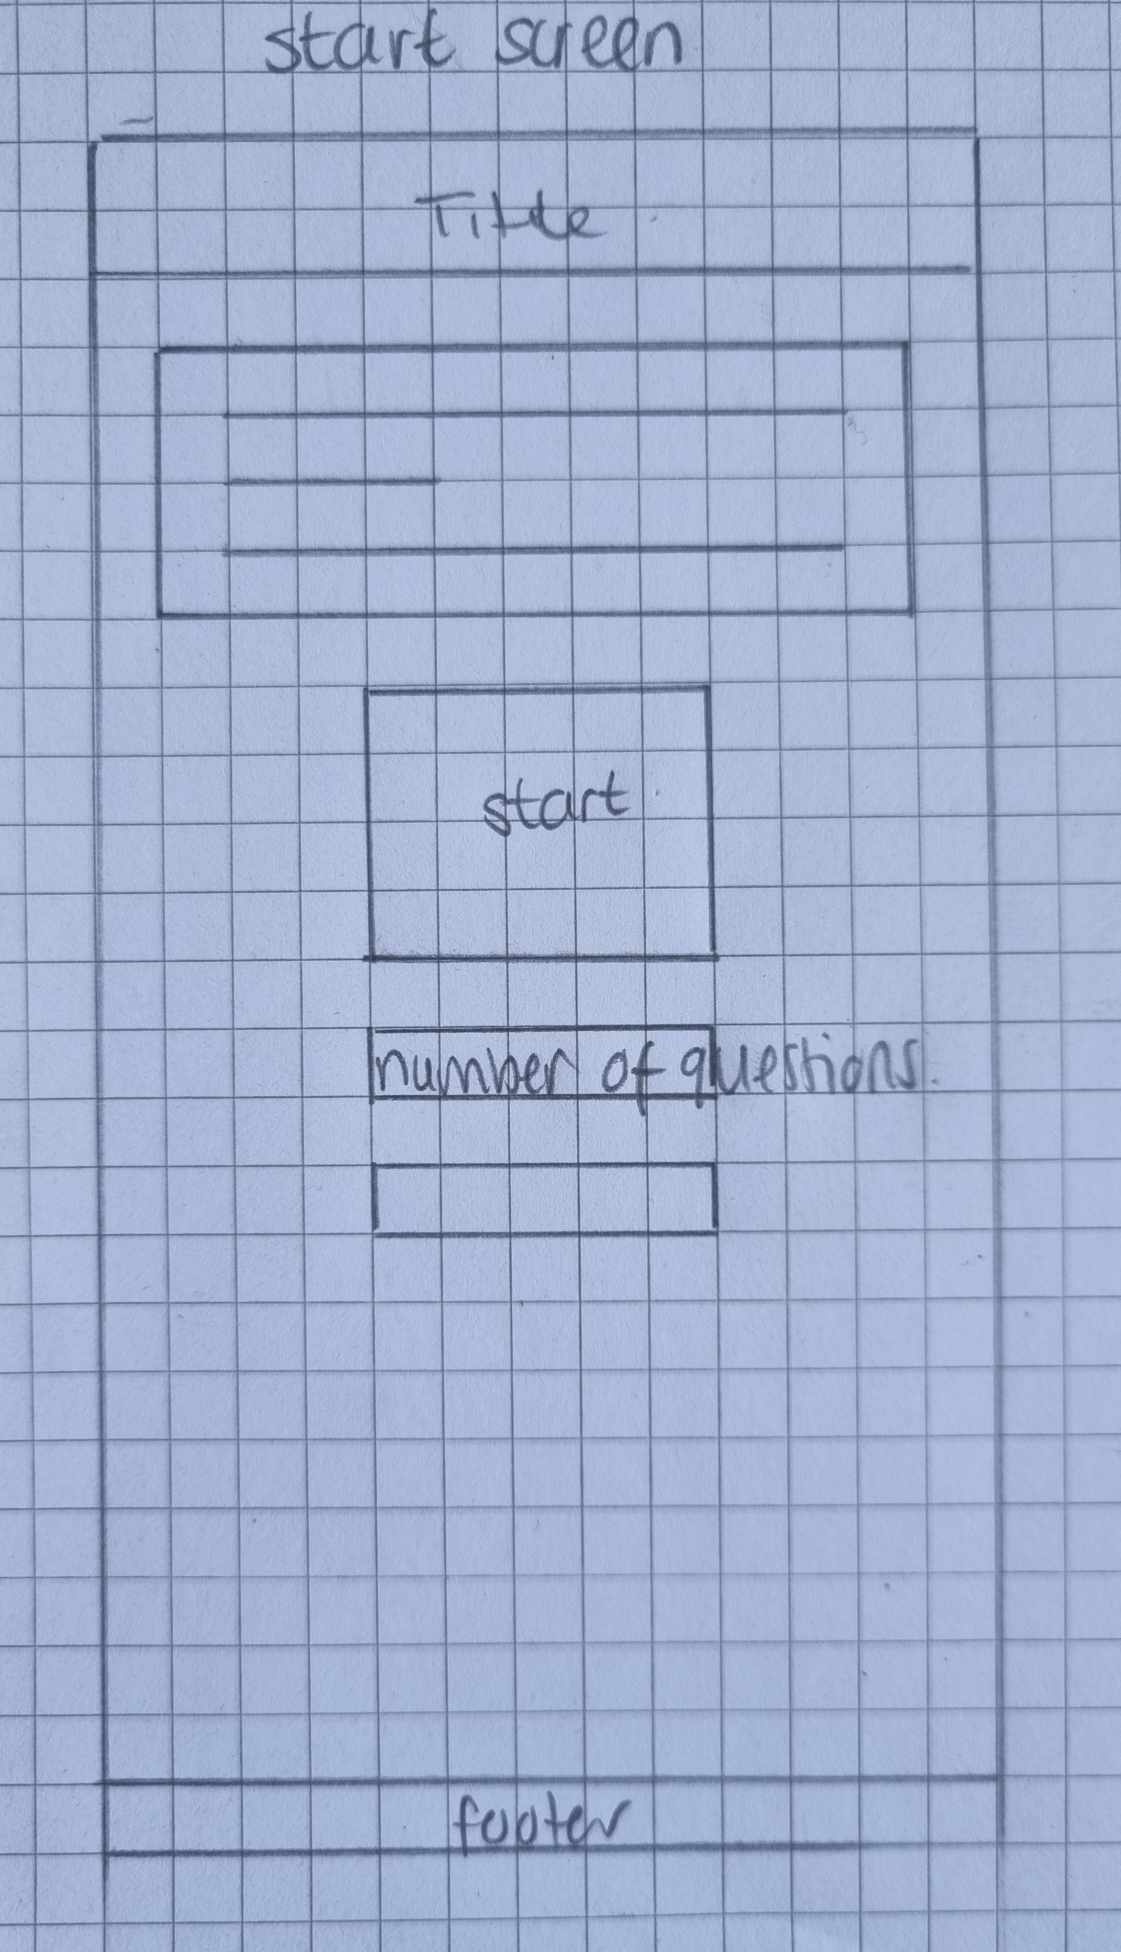 start screen
Title
start
number of questions.
footer